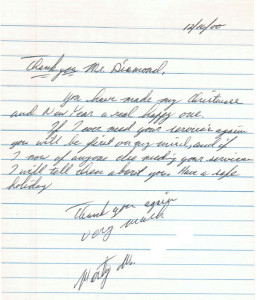 12/16/00
Thank you Mr. Diamond,
You have made my Christmas
and New Year a real happy one.
If I ever need your services again
you will be first on my mind, and if
I now of anyone else needing your services
I will tell them about you. Have a safe
holiday
Thank you again
very much
Morty M.